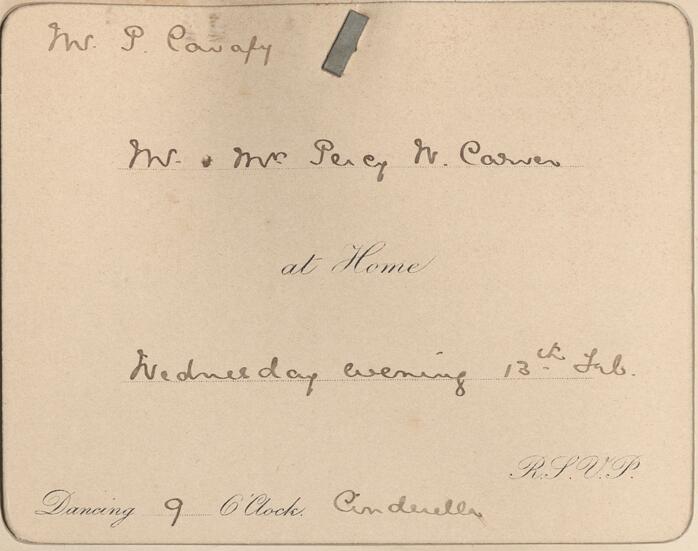 Mr. P. Cavafy
Mr. & Mrs Percy W. Carver
at Home
Wednesday evening 13th Feb.
R.S.V.P.
Dancing 9 O'Clock. Cinderella